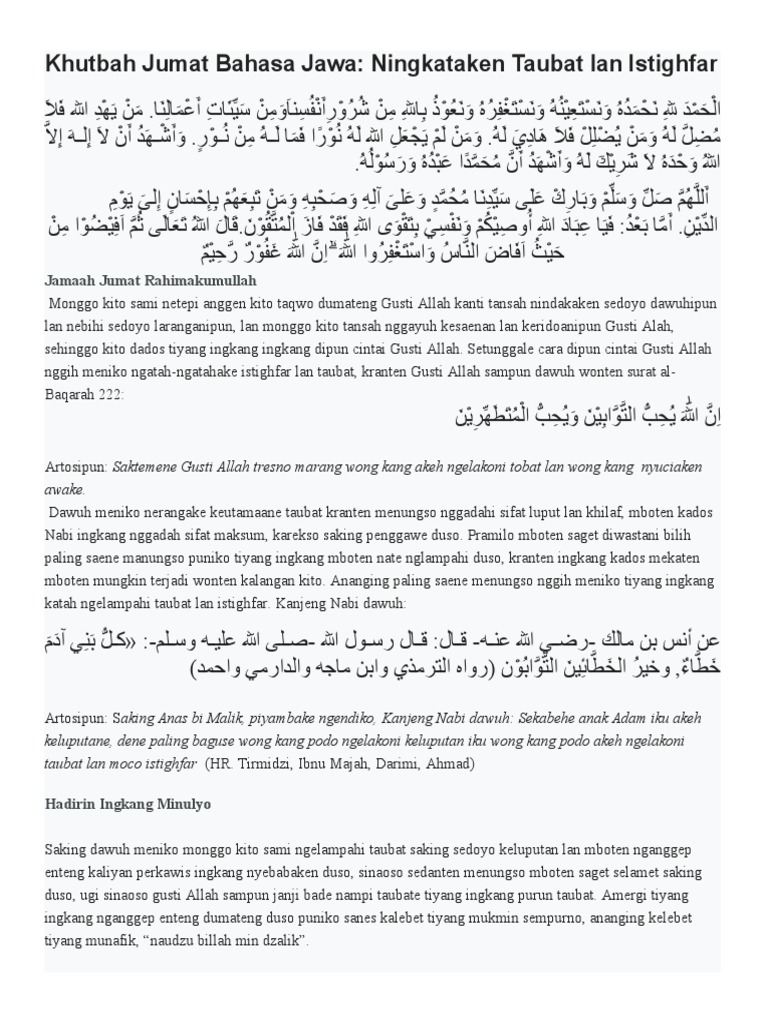 Khutbah Jumat Bahasa Jawa: Ningkataken Taubat lan Istighfar
الْحَمْدَ للهِ نَحْمَدُهُ وَنَسْتَعِيْنُهُ وَنَسْتَغْفِرُهُ وَنَعُوْذُ بِاللهِ مِنْ شُرُوْرِأَنْفُسِنَاوَمِنْ سَيِّئَاتِ أَعْمَالِنَا. مَنْ يَهْدِ الله فَلاَ
مُضِلَّ لَهُ وَمَنْ يُضْلِلْ فَلاَ هَادِيَ لَهُ. وَمَنْ لَمْ يَجْعَلِ الله لَهُ نُوْرًا فَمَا لَـهُ مِنْ نُـوْرٍ. وَأَشْـهَدُ أَنْ لاَ إِلَـهَ إِلاَّ
اللهُ وَحْدَهُ لاَ شَرِيْكَ لَهُ وَأَشْهَدُ أَنَّ مُحَمَّدًا عَبْدُهُ وَرَسُوْلُهُ.
أَللَّهُمَّ صَلِّ وَسَلِّمْ وَبَارِكْ عَلٰى سَيِّدِنَا مُحُمَّدٍ وَعَلىَ آلِهِ وَصَحْبِهِ وَمَنْ تَبِعَهُمْ بِإِحْسَانٍ إِلىَ يَوْمِ
الدِّيْنِ. أَمَّا بَعْدُ: فَيَا عِبَادَ اللهِ أُوصِيْكُمْ وَنَفْسِيْ بِتَقْوَى اللهِ فَقَدْ فَازَ اْلمُتَّقُوْنَ.قَالَ اللهُ تَعَالَى ثُمَّ اَفِيْضُوْا مِنْ
حَيْثُ اَفَاضَ النَّاسُ وَاسْتَغْفِرُوا اللّٰهَ ۗاِنَّ اللّٰهَ غَفُوْرٌ رَّحِيْمٌ
Jamaah Jumat Rahimakumullah
Monggo kito sami netepi anggen kito taqwo dumateng Gusti Allah kanti tansah nindakaken sedoyo dawuhipun
lan nebihi sedoyo laranganipun, lan monggo kito tansah nggayuh kesaenan lan keridoanipun Gusti Alah,
sehinggo kito dados tiyang ingkang ingkang dipun cintai Gusti Allah. Setunggale cara dipun cintai Gusti Allah
nggih meniko ngatah-ngatahake istighfar lan taubat, kranten Gusti Allah sampun dawuh wonten surat al-
Baqarah 222:
اِنَّ اللّٰهَ يُحِبُّ التَّوَّابِيْنَ وَيُحِبُّ الْمُتَطَهِّرِيْنَ
Artosipun: Saktemene Gusti Allah tresno marang wong kang akeh ngelakoni tobat lan wong kang nyuciaken
awake.
Dawuh meniko nerangake keutamaane taubat kranten menungso nggadahi sifat luput lan khilaf, mboten kados
Nabi ingkang nggadah sifat maksum, karekso saking penggawe duso. Pramilo mboten saget diwastani bilih
paling saene manungso puniko tiyang ingkang mboten nate nglampahi duso, kranten ingkang kados mekaten
mboten mungkin terjadi wonten kalangan kito. Ananging paling saene menungso nggih meniko tiyang ingkang
katah ngelampahi taubat lan istighfar. Kanjeng Nabi dawuh:
عن أنس بن مالك -رضـي الله عنـه- قـال: قـال رسـول الله -صـلى الله عليـه وسـلم-: «كـلُّ بَنِي آدَمَ
خَطَّاءٌ, وخيرُ الخَطَّائِينَ التَّوَّابُوْن (رواه الترمذي وابن ماجه والدارمي واحمد)
Artosipun: Saking Anas bi Malik, piyambake ngendiko, Kanjeng Nabi dawuh: Sekabehe anak Adam iku akeh
keluputane, dene paling baguse wong kang podo ngelakoni keluputan iku wong kang podo akeh ngelakoni
taubat lan moco istighfar (HR. Tirmidzi, Ibnu Majah, Darimi, Ahmad)
Hadirin Ingkang Minulyo
Saking dawuh meniko monggo kito sami ngelampahi taubat saking sedoyo keluputan lan mboten nganggep
enteng kaliyan perkawis ingkang nyebabaken duso, sinaoso sedanten menungso mboten saget selamet saking
duso, ugi sinaoso gusti Allah sampun janji bade nampi taubate tiyang ingkang purun taubat. Amergi tiyang
ingkang nganggep enteng dumateng duso puniko sanes kalebet tiyang mukmin sempurno, ananging kelebet
tiyang munafik, “naudzu billah min dzalik”.